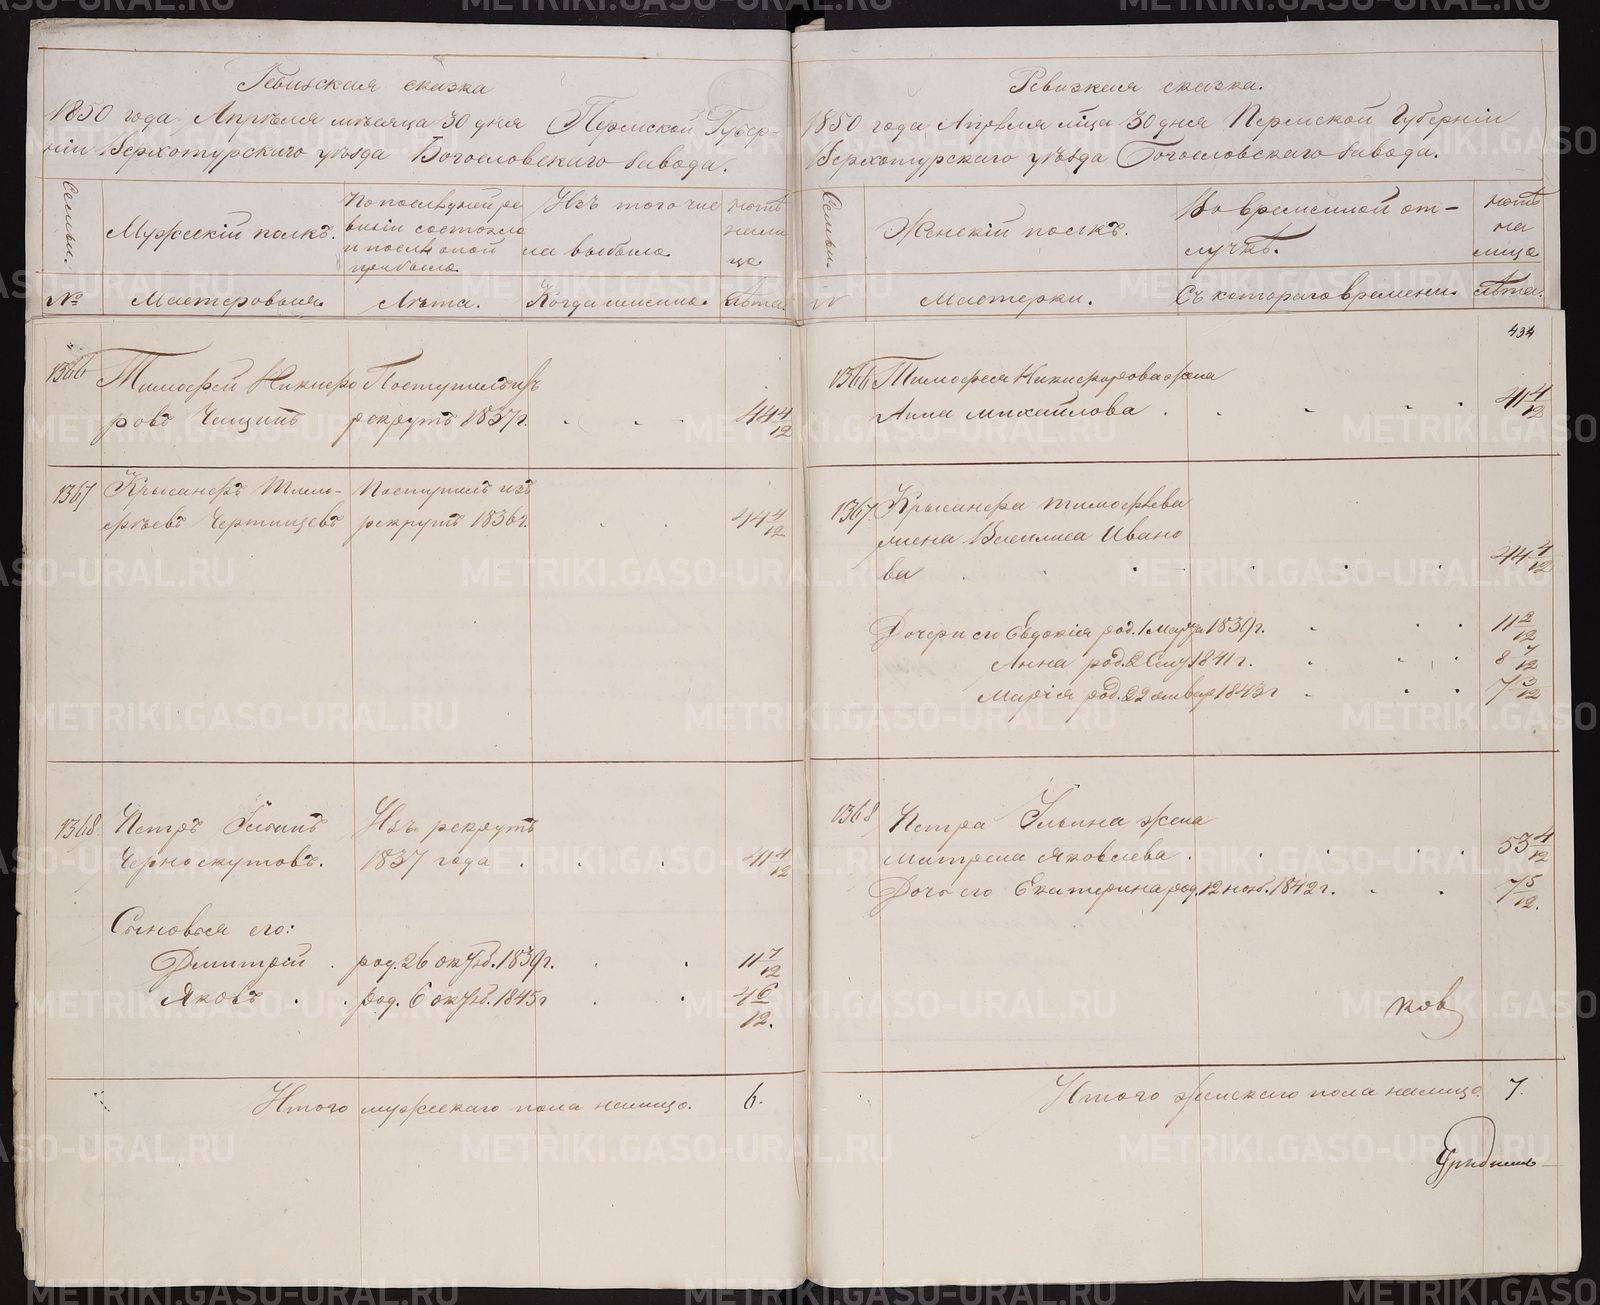 Ревизская сказка
1850 года Апреля месяца 30 дня Пермской Губер-
ніи Верхотурскаго уѣзда Богословскаго завода.
Семьи.
Мужескій полкъ.
По последней ре
визіи состояло
и после оной
прибыло
Изъ того чис
ла выбыло
нотъ
нали
це
№
Мастеровыя
Лѣта.
Когда именно
лѣта
1366
Тимофей Никифо
ровъ Чащинъ
Поступилъ изъ
рекрутъ 1837г.
44 4/12
1367
Крысанфъ Тимо-
фѣевъ
Поступилъ изъ
рекрутъ 1836г.
44 4/12
1368
Петръ Ильинъ
Черноскутовъ.
Изъ рекрутъ
1837 года
41 4/12
Сыновья его:
Дмитрій . род. 26 октяб. 1839г. 11 7/12
Яковъ . . род. 6 октяб. 1845г 4 6/12.
Итого мужескаго пола налицо. 6.
Ревизкая сказка.
1850 года Апреля м[ѣся]ца 30 дня Пермской Губерніи
Верхотурскаго уѣзда Богословскаго завода.
Семьи.
Женскій полкъ.
Во временной от-
лучкѣ.
нотъ
на
лица
№
Мастерки.
Съ котораго времени
лѣта.
434
1366
Тимофея Никифорова жена
Анна Михайлова . 41 4/12
1367
Крысанфа Тимофѣева
жена Василиса Ивано
ва 44 4/12
Дочери его Евдокія род. 1 Марта 1839г. 11 2/12
Анна род. 1841г. 8 7/12
Марія род. 22 января 1843г 7 3/12
1368
Петра Ильина жена
Матрена Яковлева . 53 4/12
Дочь его Екатерина род. 12 нояб. 1842г. 7 5/12.
ков
Итого женскаго пола налицо. 7.